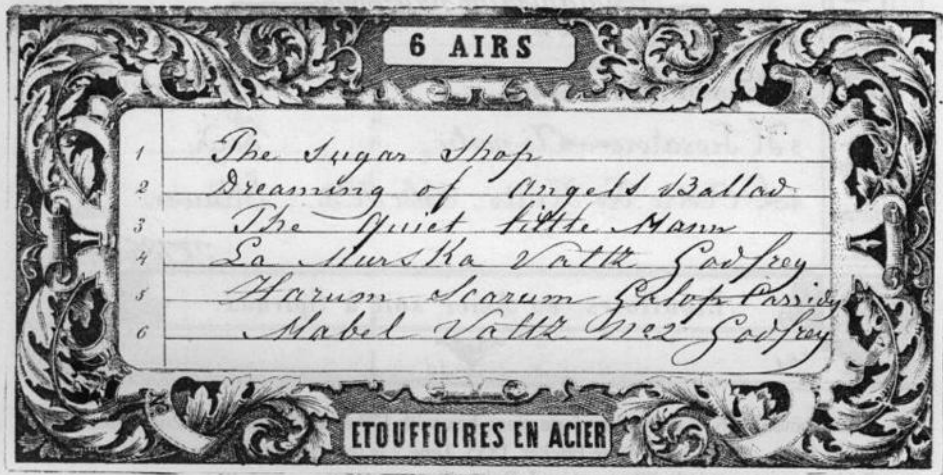 6 AIRS
1 The Sugar Shop
2 Dreaming of Angels Ballad
3 The Quiet little Mann
4 La Murska Valtz Godfrey
5 Harum Scarum Galop Cassidy
6 Mabel Valtz No2 Godfrey
ETOUFFOIRES EN ACIER